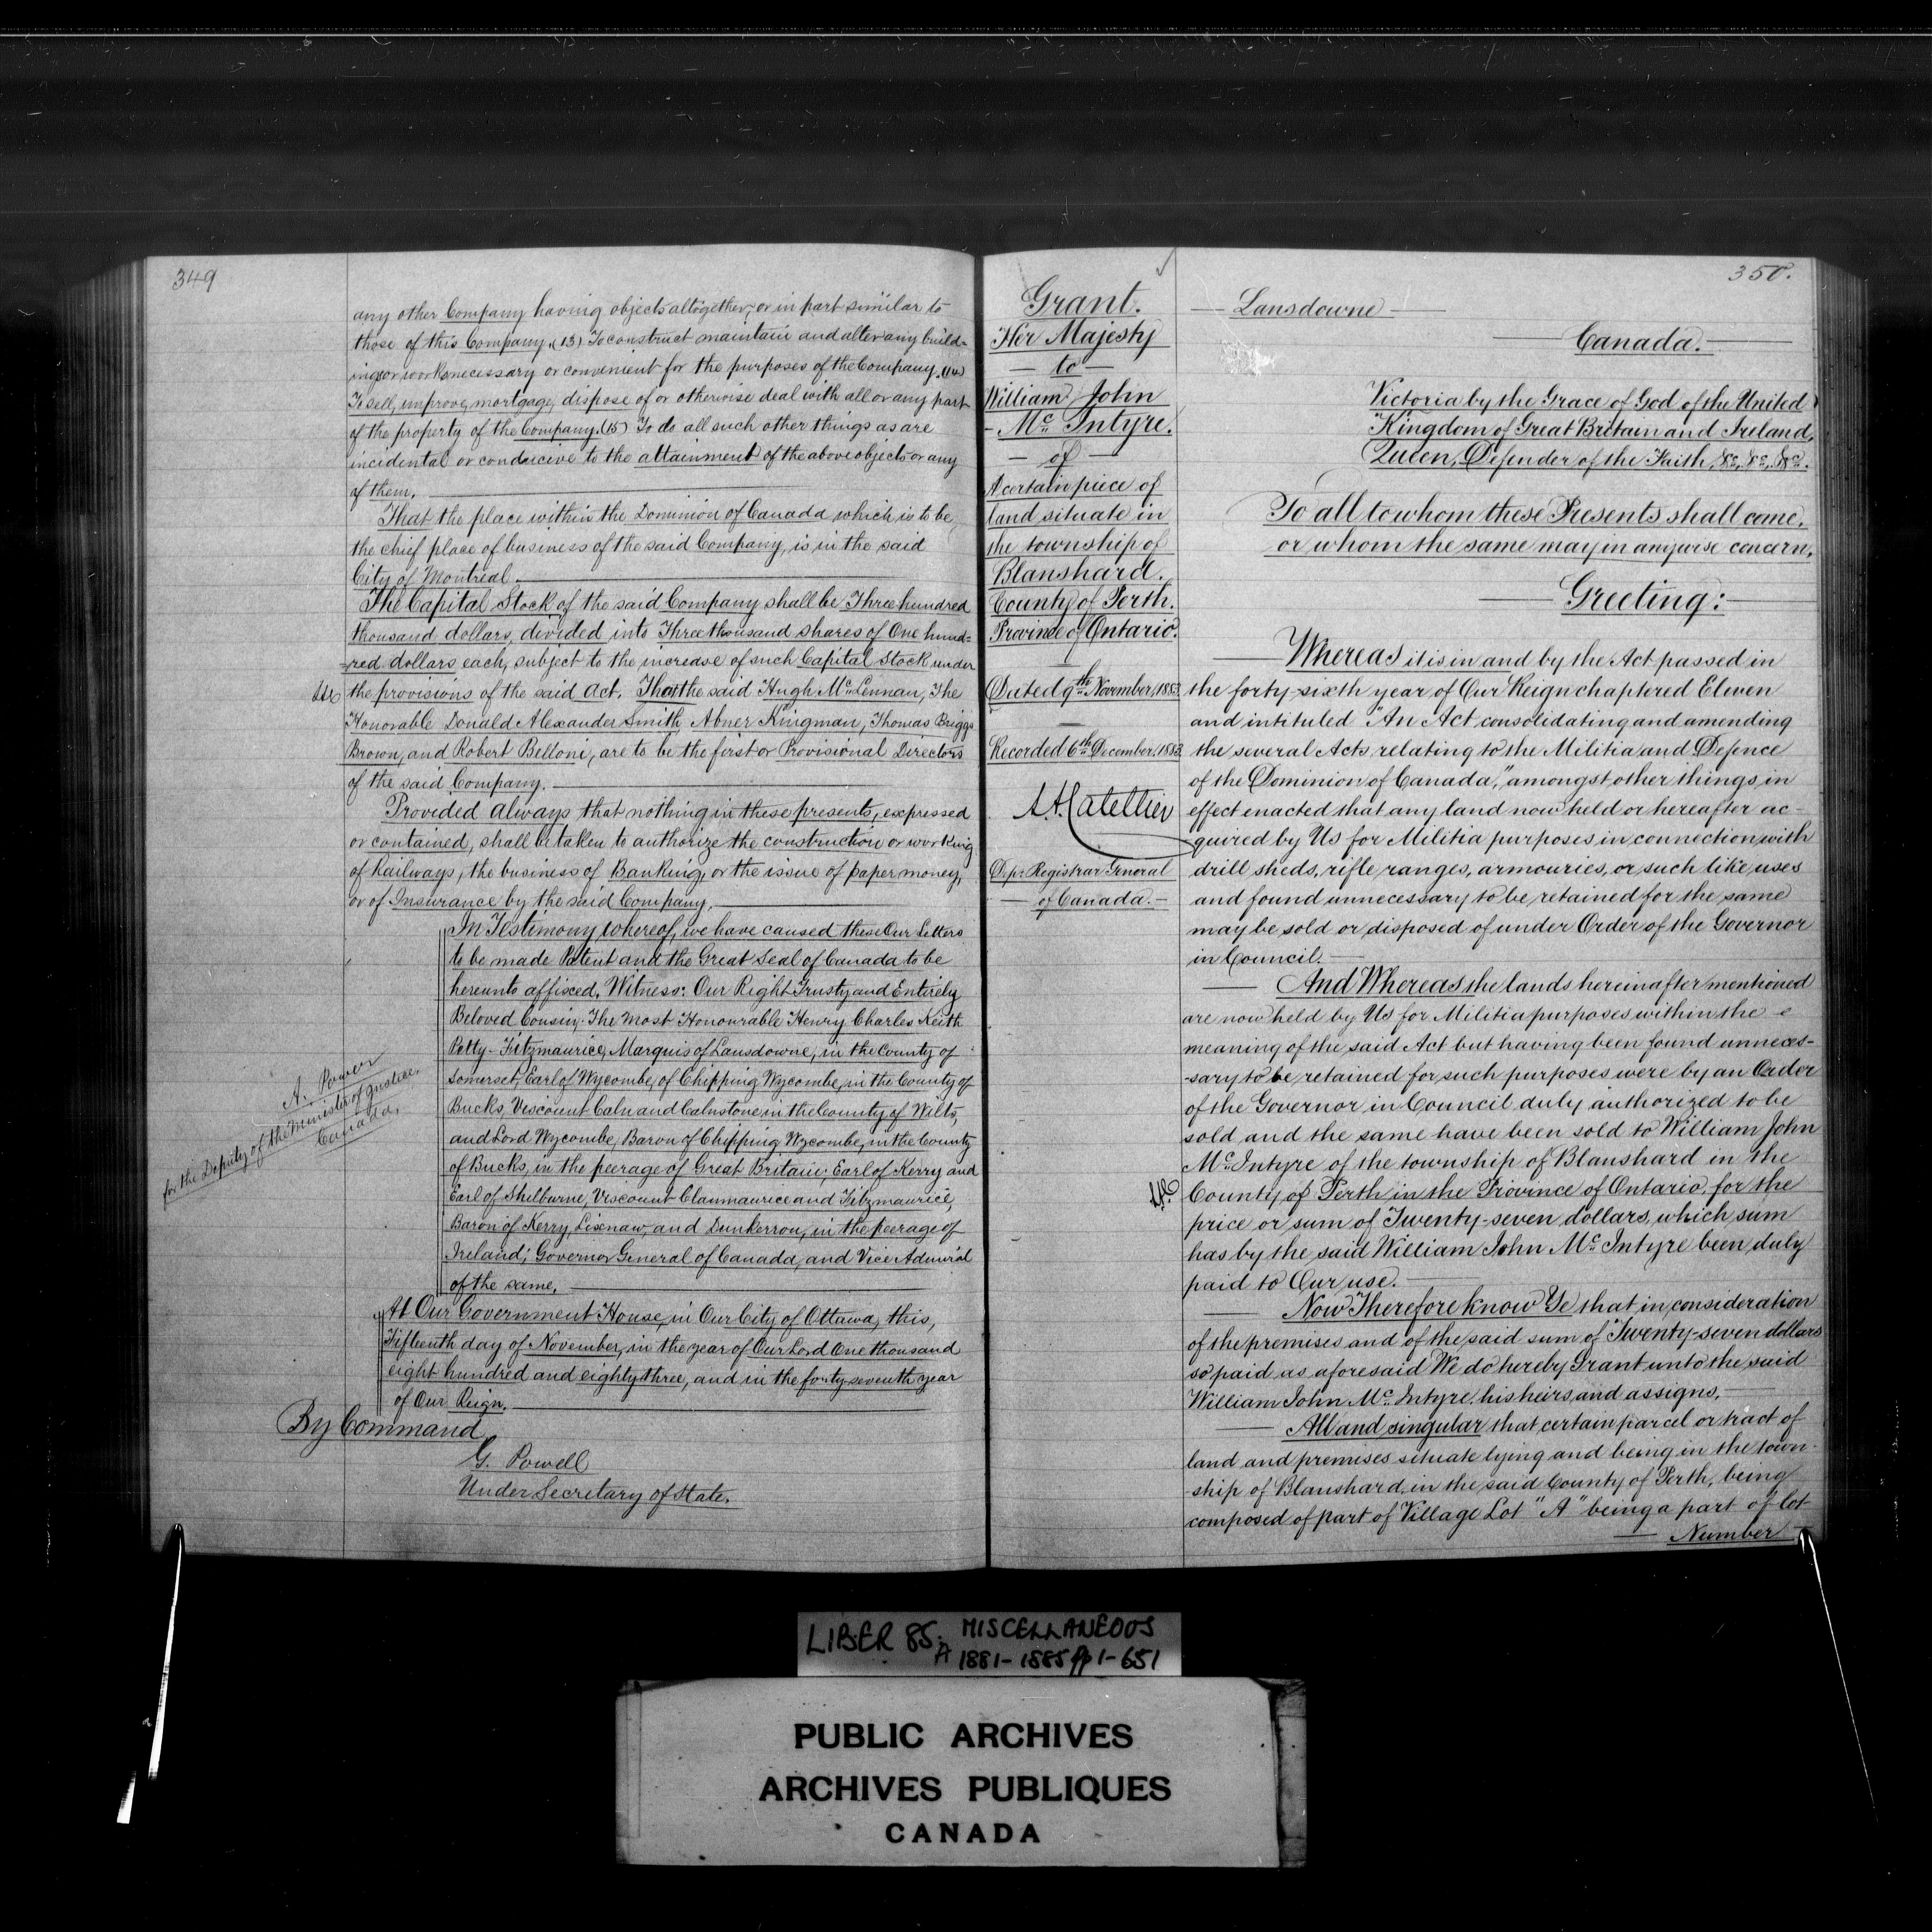 349
any other Company having objects altogether, or in part similar to
those of this Company. (13) To construct maintain and alter any build=
ings or works necessary or convenient for the purposes of the Company. (14)
To sell, improve, mortgage, dispose of or otherwise deal with all or any part
of the property of the Company. (15) To do all such other things as are
incidental or conducive to the attainment of the above objects or any
of them.
That the place within the Dominion of Canada which is to be
the chief place of business of the said Company, is in the said
City of Montreal.
The Capital Stock of the said Company shall be Three hundred
thousand dollars, divided into Three thousand shares of One hund=
=red dollars each, subject to the increase of such Capital Stock under
the provisions of the said Act. That the said Hugh McLennan, The
Honorable Donald Alexander Smith, Abner Kingman, Thomas Briggs
Brown, and Robert Belloni, are to be the first or Provisional Directors
of the said Company.
Provided Always that nothing in these presents, expressed
or contained, shall be taken to authorize the construction or working
of Railways, the business of Banking, or the issue of paper money,
or of Insurance by the said Company.
In Testimony whereof, we have caused these Our Letters
to be made Patent and the Great Seal of Canada to be
hereunto affixed. Witness: Our Right Trusty and Entirely
Beloved Cousin: The Most Honourable Henry Charles Keith
Petty-Fitzmaurice, Marquis of Lansdowne, in the County of
Somerset, Earl of Wycombe, of Chipping Wycombe, in the County of
Bucks, Viscount Caln and Calnstone in the County of Wilts,
and Lord Wycombe, Baron of Chipping Wycombe, in the County
of Bucks, in the peerage of Great Britain; Earl of Kerry and
Earl of Shelburne, Viscount Clanmaurice and Fitzmaurice,
Baron of Kerry, Lixnaw, and Dunkerron, in the peerage of
Ireland; Governor General of Canada, and Vice Admiral
of the same.
A. Power
for the Deputy of the Minister of Justice,
Canada.
At Our Government House, in Our City of Ottawa, this,
Fifteenth day of November, in the year of Our Lord One thousand
eight hundred and eighty three, and in the forty seventh year
of Our Reign.
By Command
G. Powell
Under Secretary of State.
Grant.
Her Majesty
to
William John
McIntyre.
of
A certain piece of
land situate in
the township of
Blanshard.
County of Perth.
Province of Ontario.
Dated 9th November, 1883.
Recorded 6th December, 1883.
Depy Registrar General
of Canada.
350.
Lansdowne
Canada.
Victoria by the Grace of God of the United
Kingdom of Great Britain and Ireland,
Queen, Defender of the Faith, &c, &c, &c.
To all to whom these Presents shall come,
or whom the same may in anywise concern,
Greeting:
Whereas it is in and by the Act passed in
the forty-sixth year of Our Reign chaptered Eleven
and intituled "An Act consolidating and amending
the several Acts relating to the Militia and Defence
of the Dominion of Canada," amongst other things, in
effect enacted that any land now held or hereafter ac-
quired by Us for Militia purposes in connection with
drill sheds, rifle ranges, armouries, or such like uses
and found unnecessary to be retained for the same
may be sold or disposed of under Order of the Governor
in Council.
And Whereas the lands hereinafter mentioned
are now held by Us for Militia purposes within the
meaning of the said Act but having been found unneces-
-sary to be retained for such purposes were by an Order
of the Governor in Council duly authorized to be
sold and the same have been sold to William John
McIntyre of the township of Blanshard in the
County of Perth in the Province of Ontario, for the
price or sum of Twenty-seven dollars, which sum
has by the said William John McIntyre been duly
paid to Our use.
Now Therefore know Ye that in consideration
of the premises and of the said sum of Twenty-seven dollars
so paid as aforesaid We do hereby Grant unto the said
William John McIntyre, his heirs and assigns,
All and singular that certain parcel or tract of
land and premises situate lying and being in the town-
ship of Blanshard, in the said County of Perth, being
composed of part of Village Lot "A" being a part of lot
Number
LIBER 85. MISCELLANEOUS
A 1881-1885 pp 1-651
PUBLIC ARCHIVES
ARCHIVES PUBLIQUES
CANADA